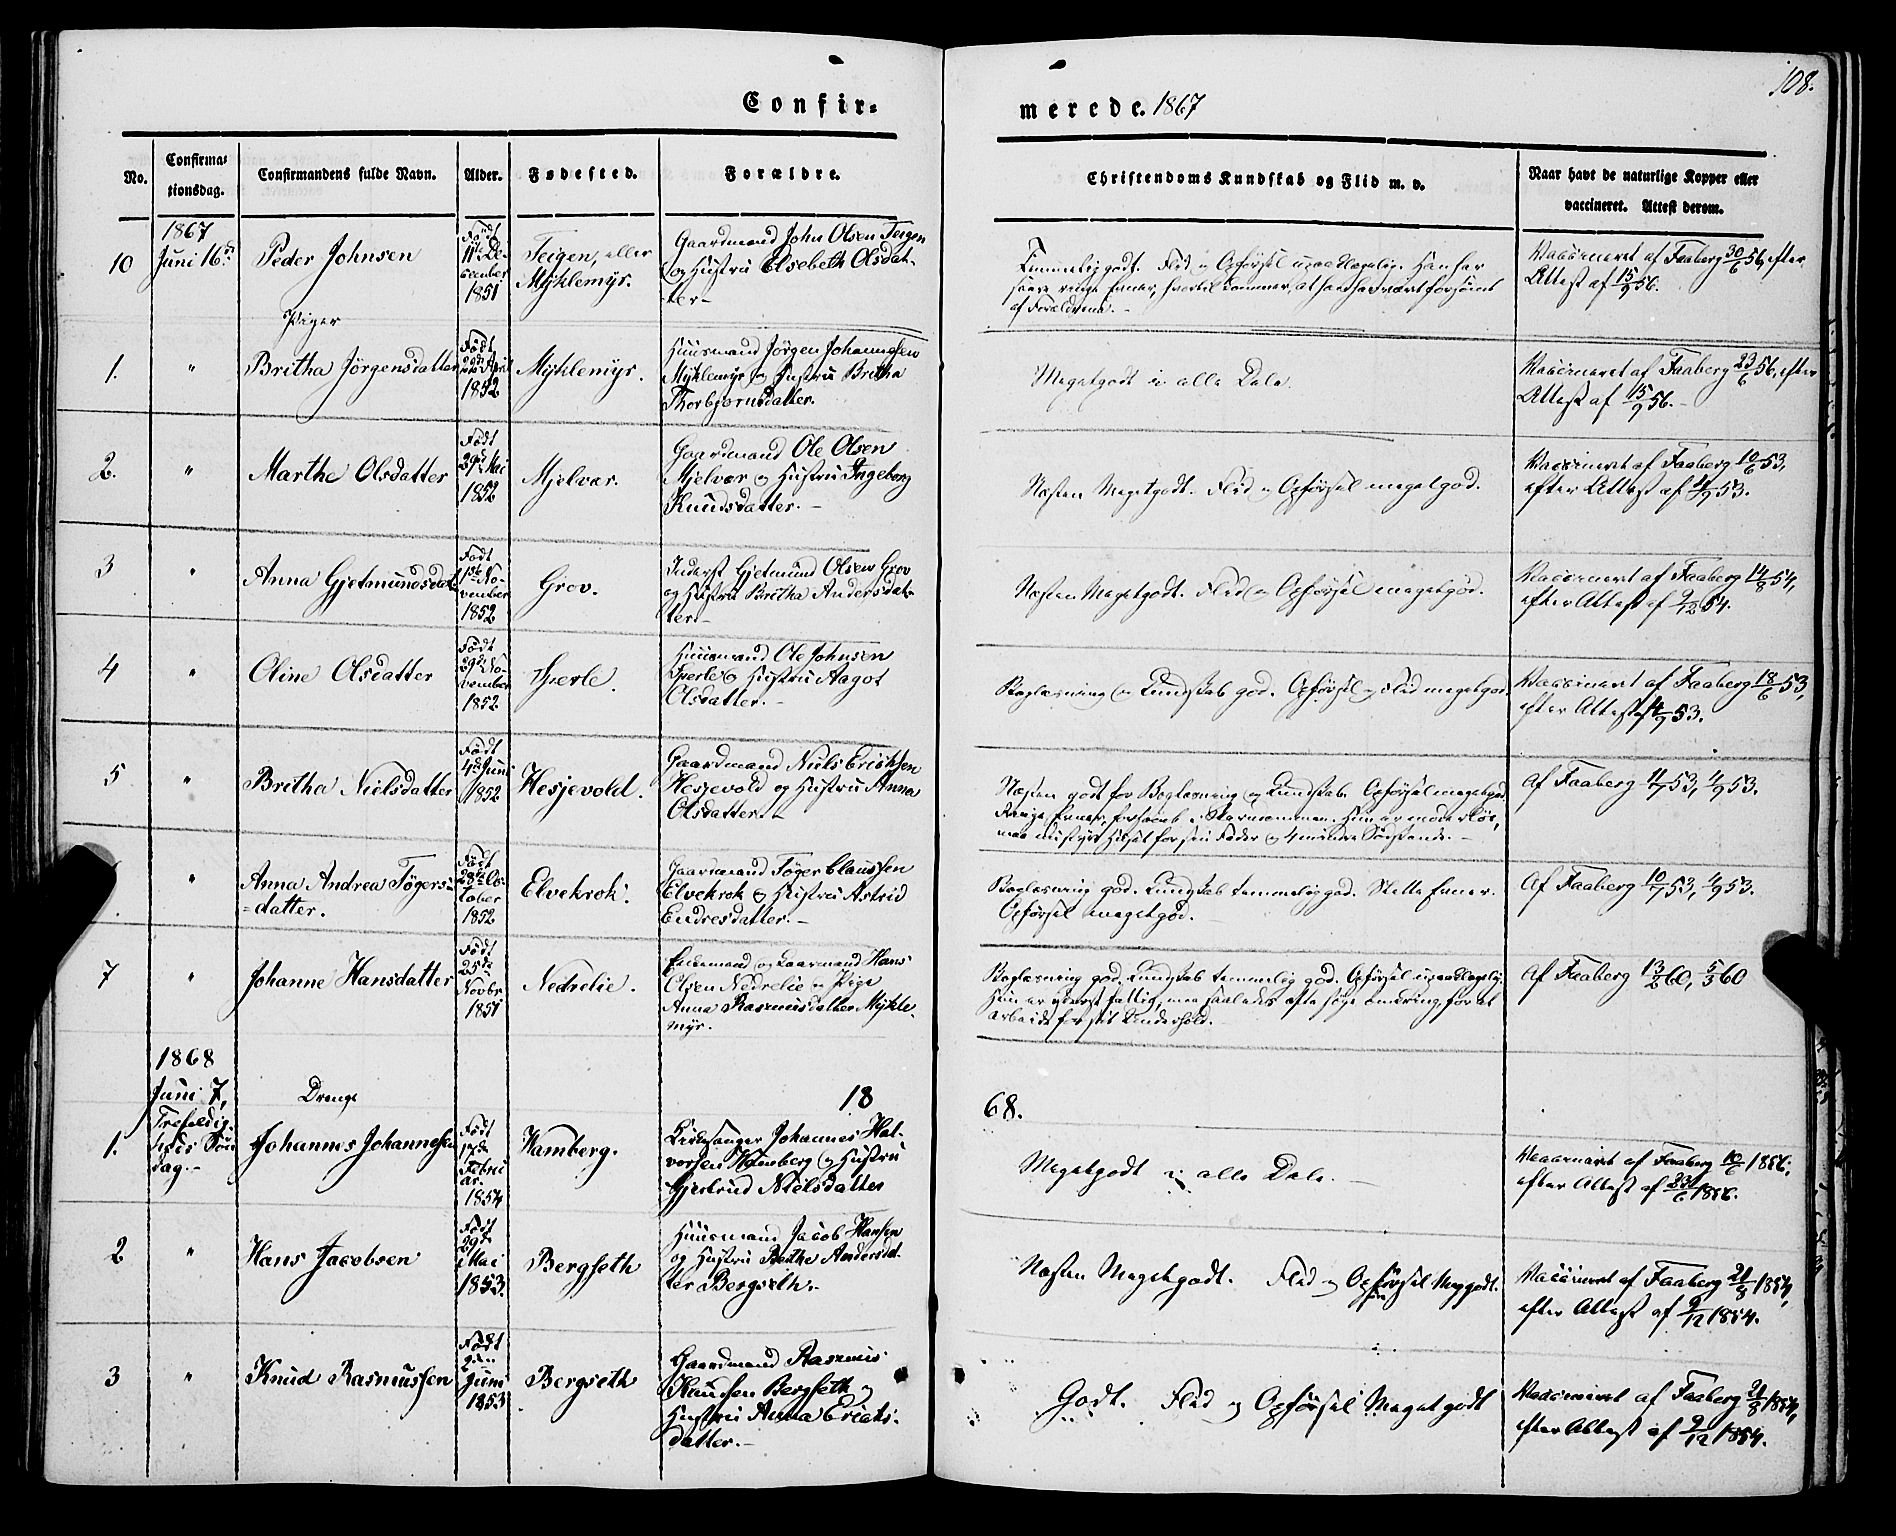 108.
Confir-
merede. 1867
No.
Confirma-
tionsdag.
Confirmandens fulde Navn.
Alder.
Fødested.
Forældre.
Christendoms Kundskab og Flid m. v.
Naar havt de naturlige Kopper eller
vaccineret. Attest derom.
10
1867
Juni 16de
Peder Johnsen
Født
11te De-
cember
1851
Teigen, eller
Myklemyr.
Gaardmand John Olsen Teigen
og Hustru Elsebeth Olsdat-
ter-
Temmelig godt. Flid og Opførsel upaaklagelig. Han har
af Forældrene.-
Vaccineret af Faaberg 30/6 56, efter
Attest af 15/9 56.
Piger
1.
"
Britha Jörgensdatter
Født
April
1852
Myklemyr.
Huusmand Jörgen Johannessen
Myklemyr og Hustru Britha
Thorbjørnsdatter.
Megetgodt i alle Dele.
Vaccineret af Faaberg 23/6 56, efter
Attest af 15/9 56.-
2.
"
Marthe Olsdatter
Født
29de Mai
1852
Mjelvær.
Gaardmand Ole Olsen
Mjelvær og Hustru Ingeborg
Knudsdatter.-
Næsten Megetgodt. Flid og Opførsel megetgod.
Vaccineret af Faaberg 10/6 53,
efter Attest af 4/9 53.
3
"
Anna Gjetmundsdat.
Født
1ste No-
vember
1852
Grov.
Inderst Gjetmund Olsen Grov
og Hustru Britha Andersdat-
ter.-
Næsten Megetgodt. Flid og Opførsel megetgod.
Vaccineret af Faaberg 14/8 54,
efter Attest af 9/12 54.
4
"
Oline Olsdatter
Født
29de No-
vember
1852.
Sperle.
Huusmand Ole Johnsen
Sperle og Hustru Aagot
Olsdatter.-
Boglæsning og Kundskab god. Opførsel og Flid megetgod.
Vaccineret af Faaberg 18/6 53,
efter Attest af 4/9 53.
5
"
Britha Nielsdatter
Født
4de Juni
1852
Hesjevold.
Gaardmand Niels Ericksen
Hesjevold og Hustru Anna
Olsdatter.-
Næsten godt for Boglæsning og Kundskab. Opførsel megetgod.
Ringe Evner, Hun er moderløs,
maa bestyre Huset for sin Fader og 4 mindre Sødskende.-
Af Faaberg 11/7 53, 4/9 53.
"
Anna Andrea Töger-
=datter.
Født
28de Oc-
tober
1852
Elvekrok.
Gaardmand Töger Claussen
Elvekrok og Hustru Astrid
Endresdatter.-
Boglæsning god. Kundskab temmelig god. Slette Evner.
Opførsel megetgod.-
Af Faaberg 10/7 53, 4/9 53.
7
"
Johanne Hansdatter
Født
25de
Novbr
1851
Nedrelie.
Enkemand og Gaardmand Hans
Olsen Nedrelie og Pige
Anna Rasmusdatter Mykle-
myr.
Boglæsning god, Kundskab temmelig god. Opførsel upaaklagelig.
Hun er yderst fattig, maa saaledes ofte søge omkring for at
arbeide for sit Underhold.-
Af Faaberg 13/2 60, 5/5 60
1868
Juni 7,
Trefoldig-
heds Søn-
dag.-
Drenge
18
68.
1.
Johannes Johannesen
Født
17de
Febru
ar.
1854
Kamberg.
Kirkesanger Johannes Hal-
vorsen Kamberg og Hustru
Gjertrud Nielsdatter
Megetgodt i alle Dele.-
Vaccineret af Faaberg 10/6 1856,
efter Attest af 23/6 1856.
2
"
Hans Jacobsen
Født
29de
Mai
1853.
Bergseth
Huusmand Jacob Hansen
og Hustru Brithe Andersdat-
ter Bergseth.-
Næsten Megetgodt. Flid og Opførsel Meggodt.
Vaccineret af Faaberg 21/8 1854,
efter Attest af 9/12 1854.
3
"
Knud Rasmussen
Født
Juni
1853
Bergseth
Gaardmand Rasmus
Knudsen Bergseth og
Hustru Anna Ericks-
datter.-
Godt. Flid og Opførsel Megetgodt
Vaccineret af Faaberg 21/8 1854,
efter Attest af 9/12 1854.